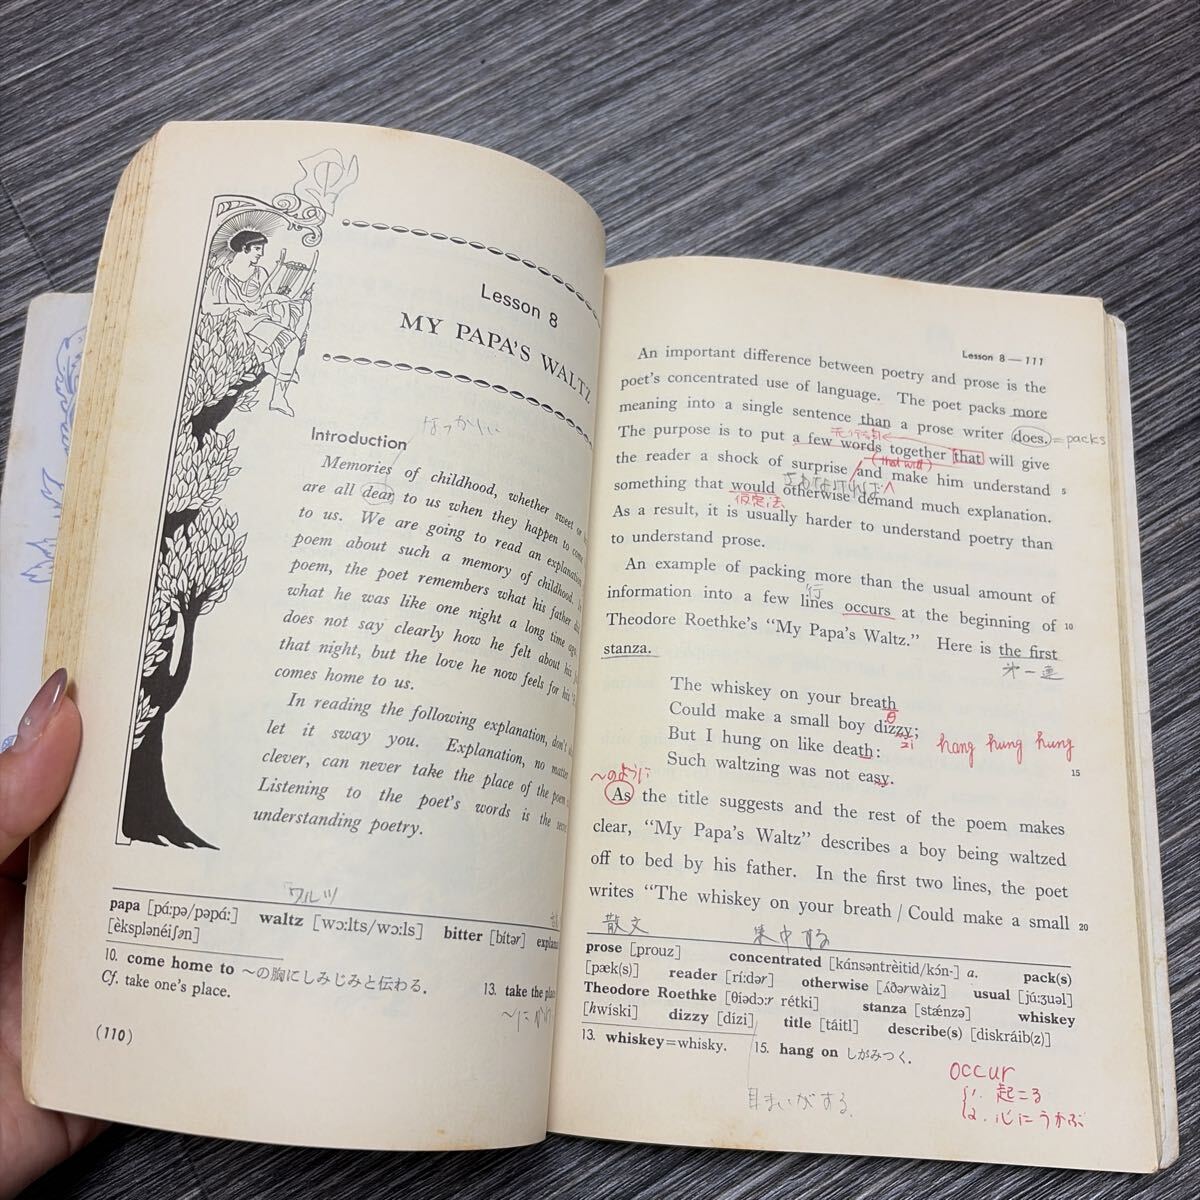 Lesson 8
MY PAPA'S WALTZ
なつかしい
Introduction
Memories of childhood, whether sweet or
are all dear to us when they happen to come
to us. We are going to read an explanation
poem about such a memory of childhood.
poem, the poet remembers what his father did
what he was like one night a long time ago.
does not say clearly how he felt about his
that night, but the love he now feels for his
comes home to us.
In reading the following explanation, don't
let it sway you. Explanation, no matter
clever, can never take the place of the poem
Listening to the poet's words is the
understanding poetry.
ワルツ
papa [pá:pə/pəpá:] waltz [wɔ:lts/wɔ:ls] bitter [bítər]
[èkspləneiʃən]
10. come home to ～の胸にしみじみと伝わる. 13. take the
Cf. take one's place.
(110)
Lesson 8—111
An important difference between poetry and prose is the
poet's concentrated use of language. The poet packs more
meaning into a single sentence than a prose writer does. =packs
先行詞
The purpose is to put a few words together that will give
(that will)
the reader a shock of surprise and make him understand 5
something that would otherwise demand much explanation.
仮定法
As a result, it is usually harder to understand poetry than
to understand prose.
An example of packing more than the usual amount of
行
information into a few lines occurs at the beginning of 10
Theodore Roethke's "My Papa's Waltz." Here is the first
stanza.
第一連
The whiskey on your breath
θ
Could make a small boy dizzy;
zi hang hung hung
But I hung on like death:
Such waltzing was not easy. 15
～のように
As the title suggests and the rest of the poem makes
clear, "My Papa's Waltz" describes a boy being waltzed
off to bed by his father. In the first two lines, the poet
writes "The whiskey on your breath / Could make a small 20
散文 集中する
prose [prouz] concentrated [kánsəntrèitid/kɔ́n-] a. pack(s)
[pæk(s)] reader [rí:dər] otherwise [ʌ́ðərwàiz] usual [jú:ʒuəl]
Theodore Roethke [θíədɔ:r rétki] stanza [stǽnzə] whiskey
[hwíski] dizzy [dízi] title [táitl] describe(s) [diskráib(z)]
13. whiskey=whisky. 15. hang on しがみつく.
目まいがする.
occur
1. 起こる
2. 心にうかぶ